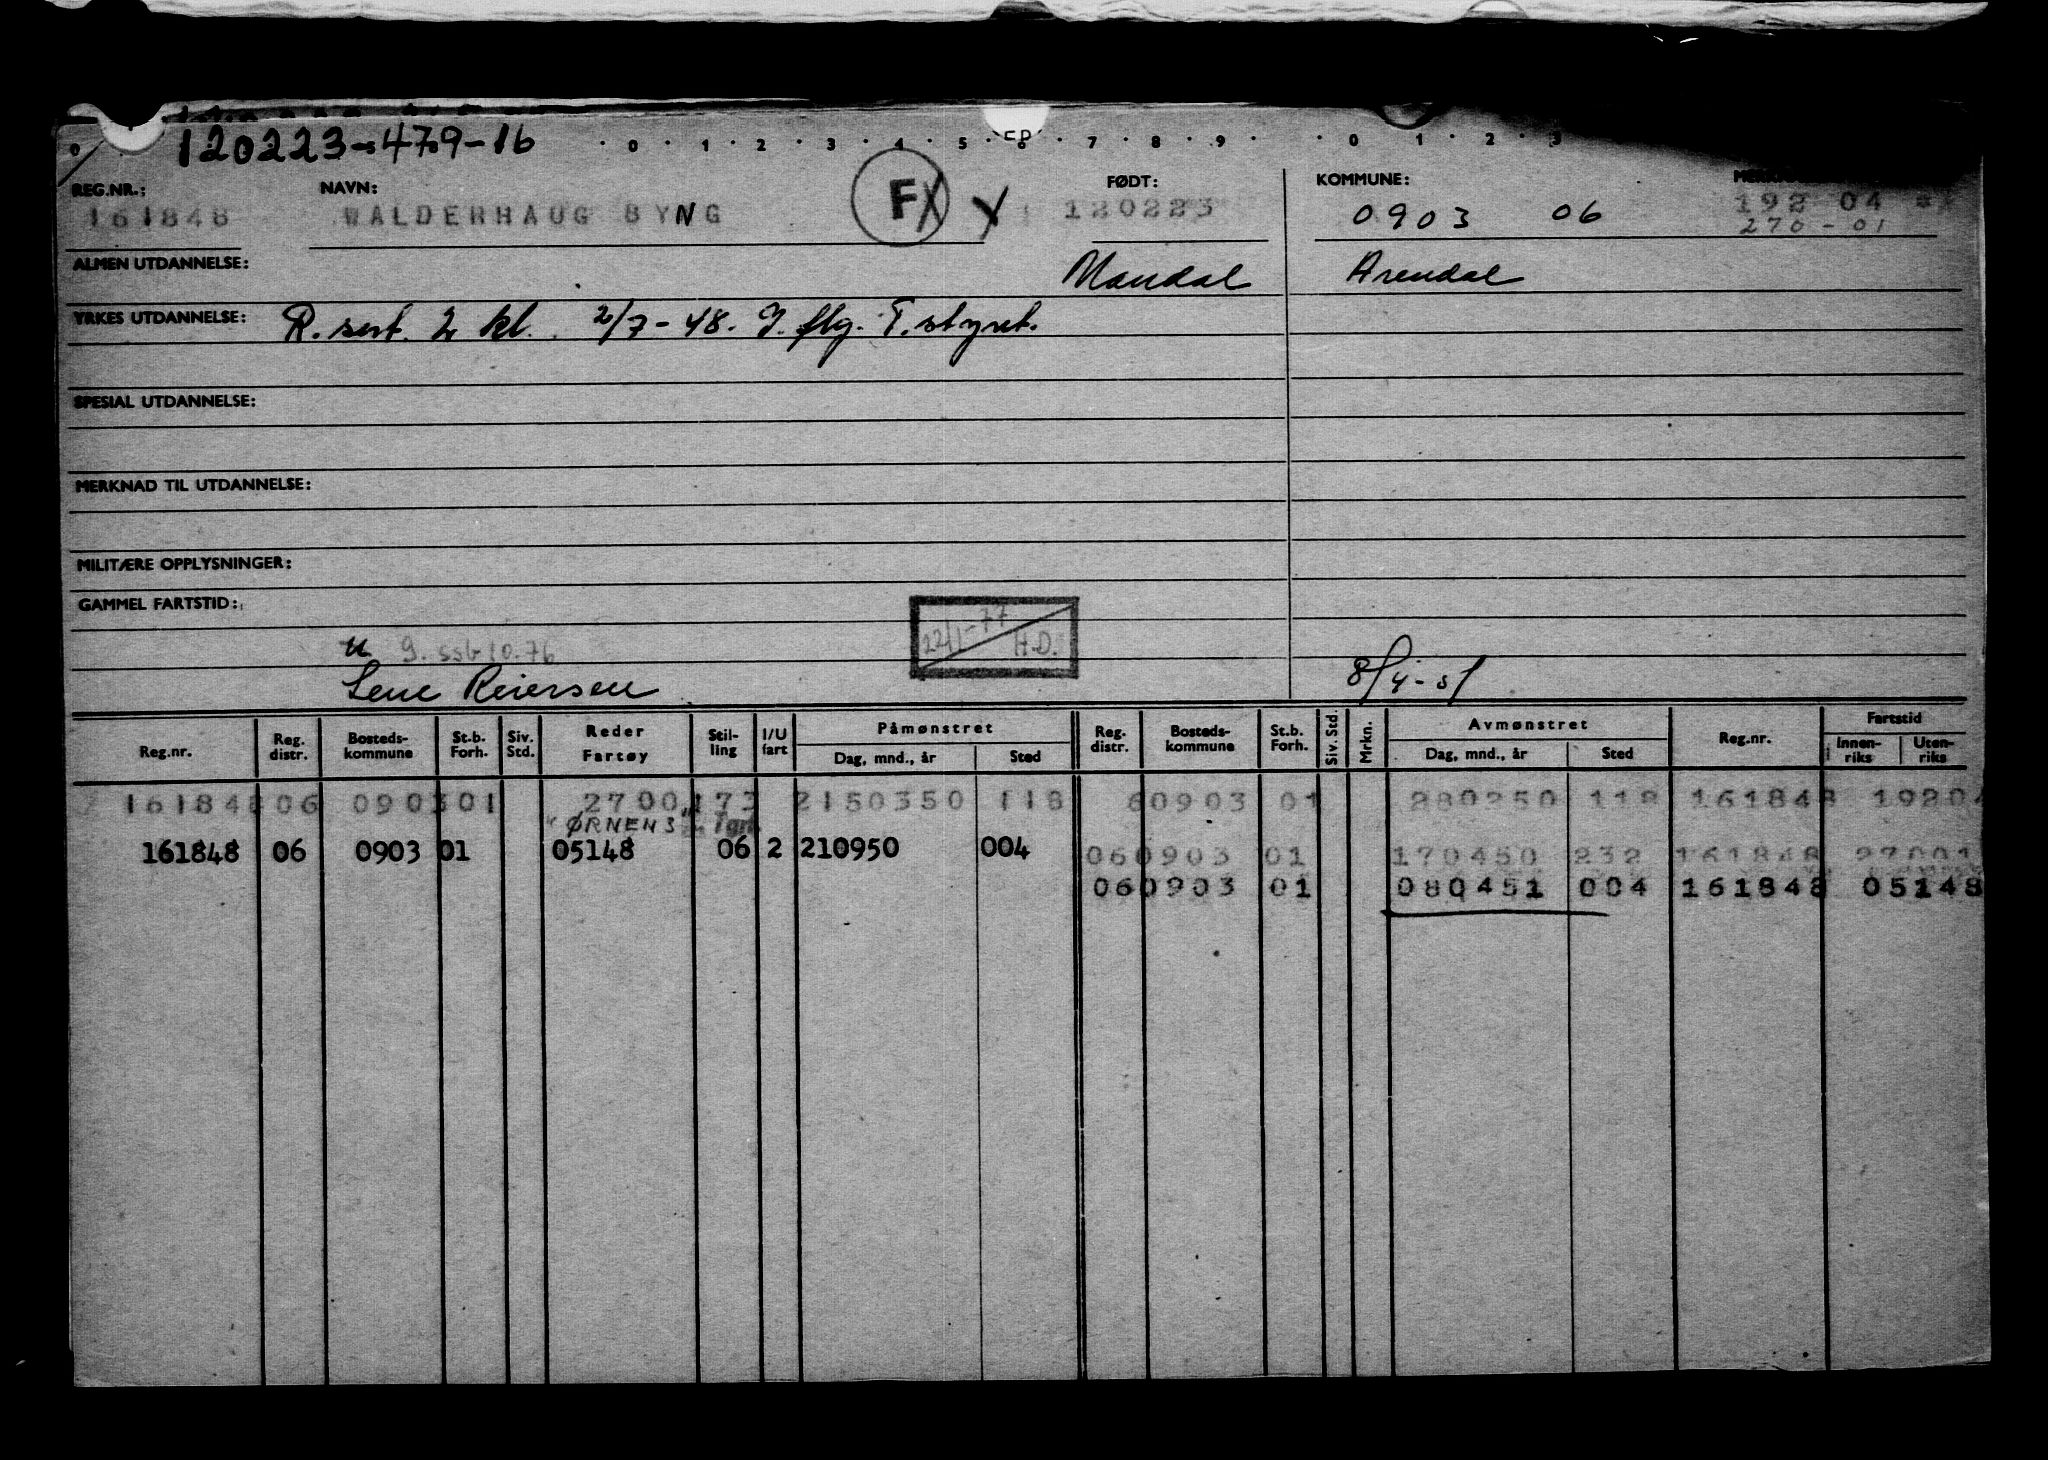 120223-479-16
0 1 2 3 4 5 7 8 9 0 1 2 3
REG.NR.: NAVN: FØDT: KOMMUNE:
161848 WALDERHAUG BYNG FX 120223 0903 06 192 04
270-01
ALMEN UTDANNELSE: Mandal Arendal
YRKES UTDANNELSE: R. sert. 2 kl. 2/7-48. T.styret.
SPESIAL UTDANNELSE:
MERKNAD TIL UTDANNELSE:
MILITÆRE OPPLYSNINGER:
GAMMEL FARTSTID:
22/1-77 H.D.
Reiersen 8/4-51
Reg.nr. Reg. distr. Bosteds-kommune St.b. Forh. Siv. Std. Reder Fartøy Stil-ling I/U fart Påmønstret Dag, mnd., år Sted Reg. distr. Bosteds-kommune St.b. Forh. Siv. Std. Mrkn. Avmønstret Dag, mnd., år Sted Reg.nr. Fartstid Innen-riks Uten-riks
161848 06 0903 01 2700 173 2 150350 118 60903 01 280250 118 161848 19204
"ØRNEN 3"
161848 06 0903 01 05148 06 2 210950 004 060903 01 170450 232 161848 27001
060903 01 080451 004 161848 05148